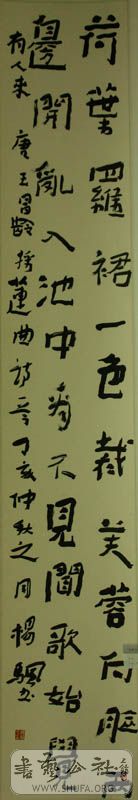 荷葉羅裙一色裁芙蓉向臉兩
邊開亂入池中看不見聞歌始覺
有人來 唐王昌齡採蓮曲詩 丁亥仲秋之月楊
書藝公社
HTTP://WWW.SHUFA.ORG